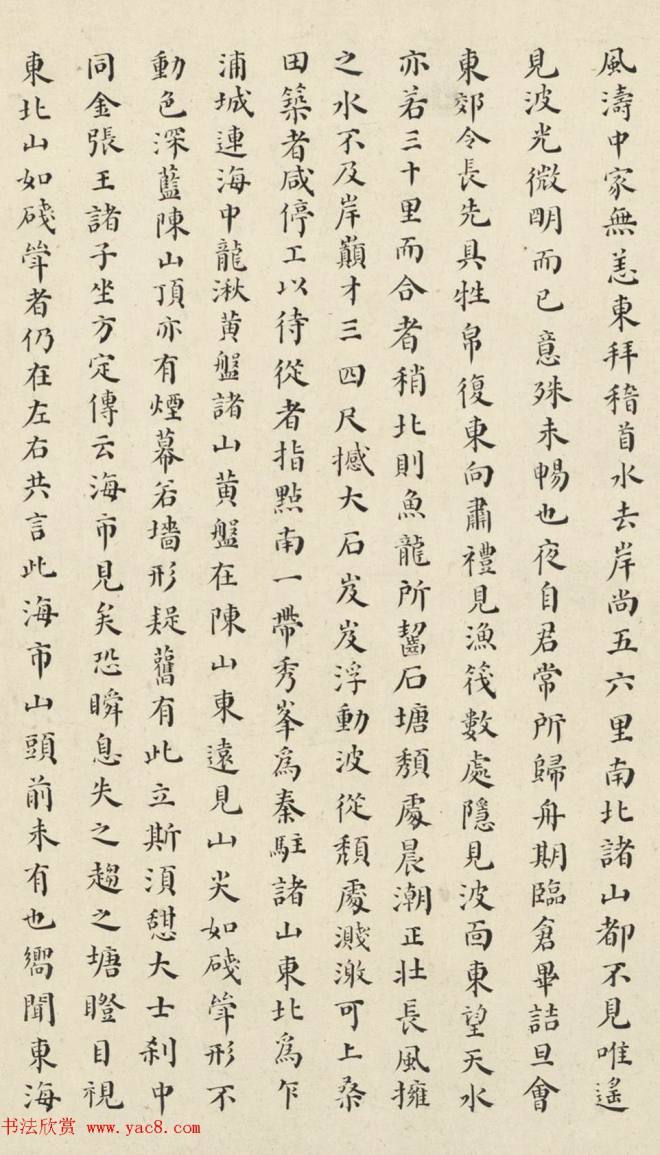 風濤中家無恙東拜稽首水去岸尚五六里南北諸山都不見唯遙
見波光微明而已意殊未暢也夜自君常所歸舟期臨倉畢詰旦會
東郊令長先具牲帛復東向肅禮見漁筏數處隱見波面東望天水
亦若三十里而合者稍北則魚龍所齧石塘頽處晨潮正壯長風擁
之水不及岸巔才三四尺撼大石岌岌浮動波從頽處濺激可上桑
田築者咸停工以待從者指點南一帶秀峯為秦駐諸山東北為乍
浦城連海中龍湫黃盤諸山黃盤在陳山東遠見山尖如礮聳形不
動色深藍陳山頂亦有煙幕若墻形疑舊有此立斯須憇大士刹中
同金張王諸子坐方定傳云海市見矣恐瞬息失之趨之塘瞪目視
東北山如礮聳者仍在左右共言此海市山頭前未有也嚮聞東海
书法欣赏 www.yac8.com